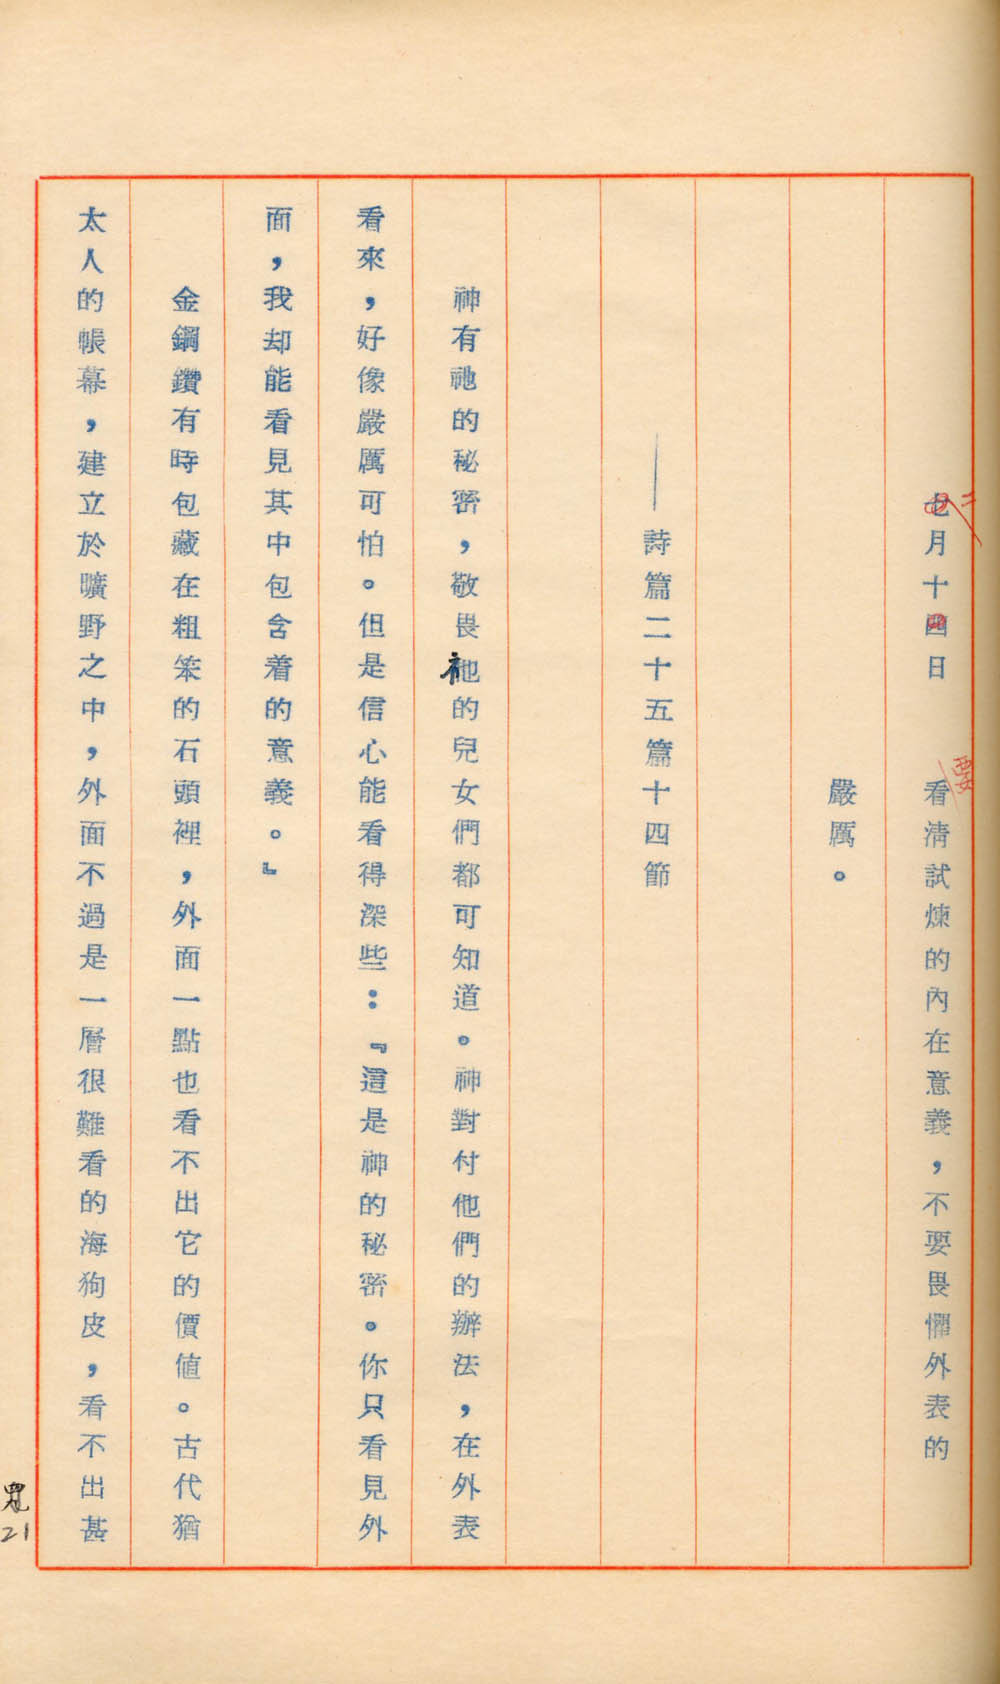 七月十四日　看清試煉的內在意義，不要畏懼外表的
二
要
嚴厲。
——詩篇二十五篇十四節
神有祂的秘密，敬畏祂的兒女們都可知道。神對付他們的辦法，在外表
看來，好像嚴厲可怕。但是信心能看得深些：『這是神的秘密。你只看見外
面，我却能看見其中包含着的意義。』
金鋼鑽有時包藏在粗笨的石頭裡，外面一點也看不出它的價值。古代猶
太人的帳幕，建立於曠野之中，外面不過是一層很難看的海狗皮，看不出甚
21